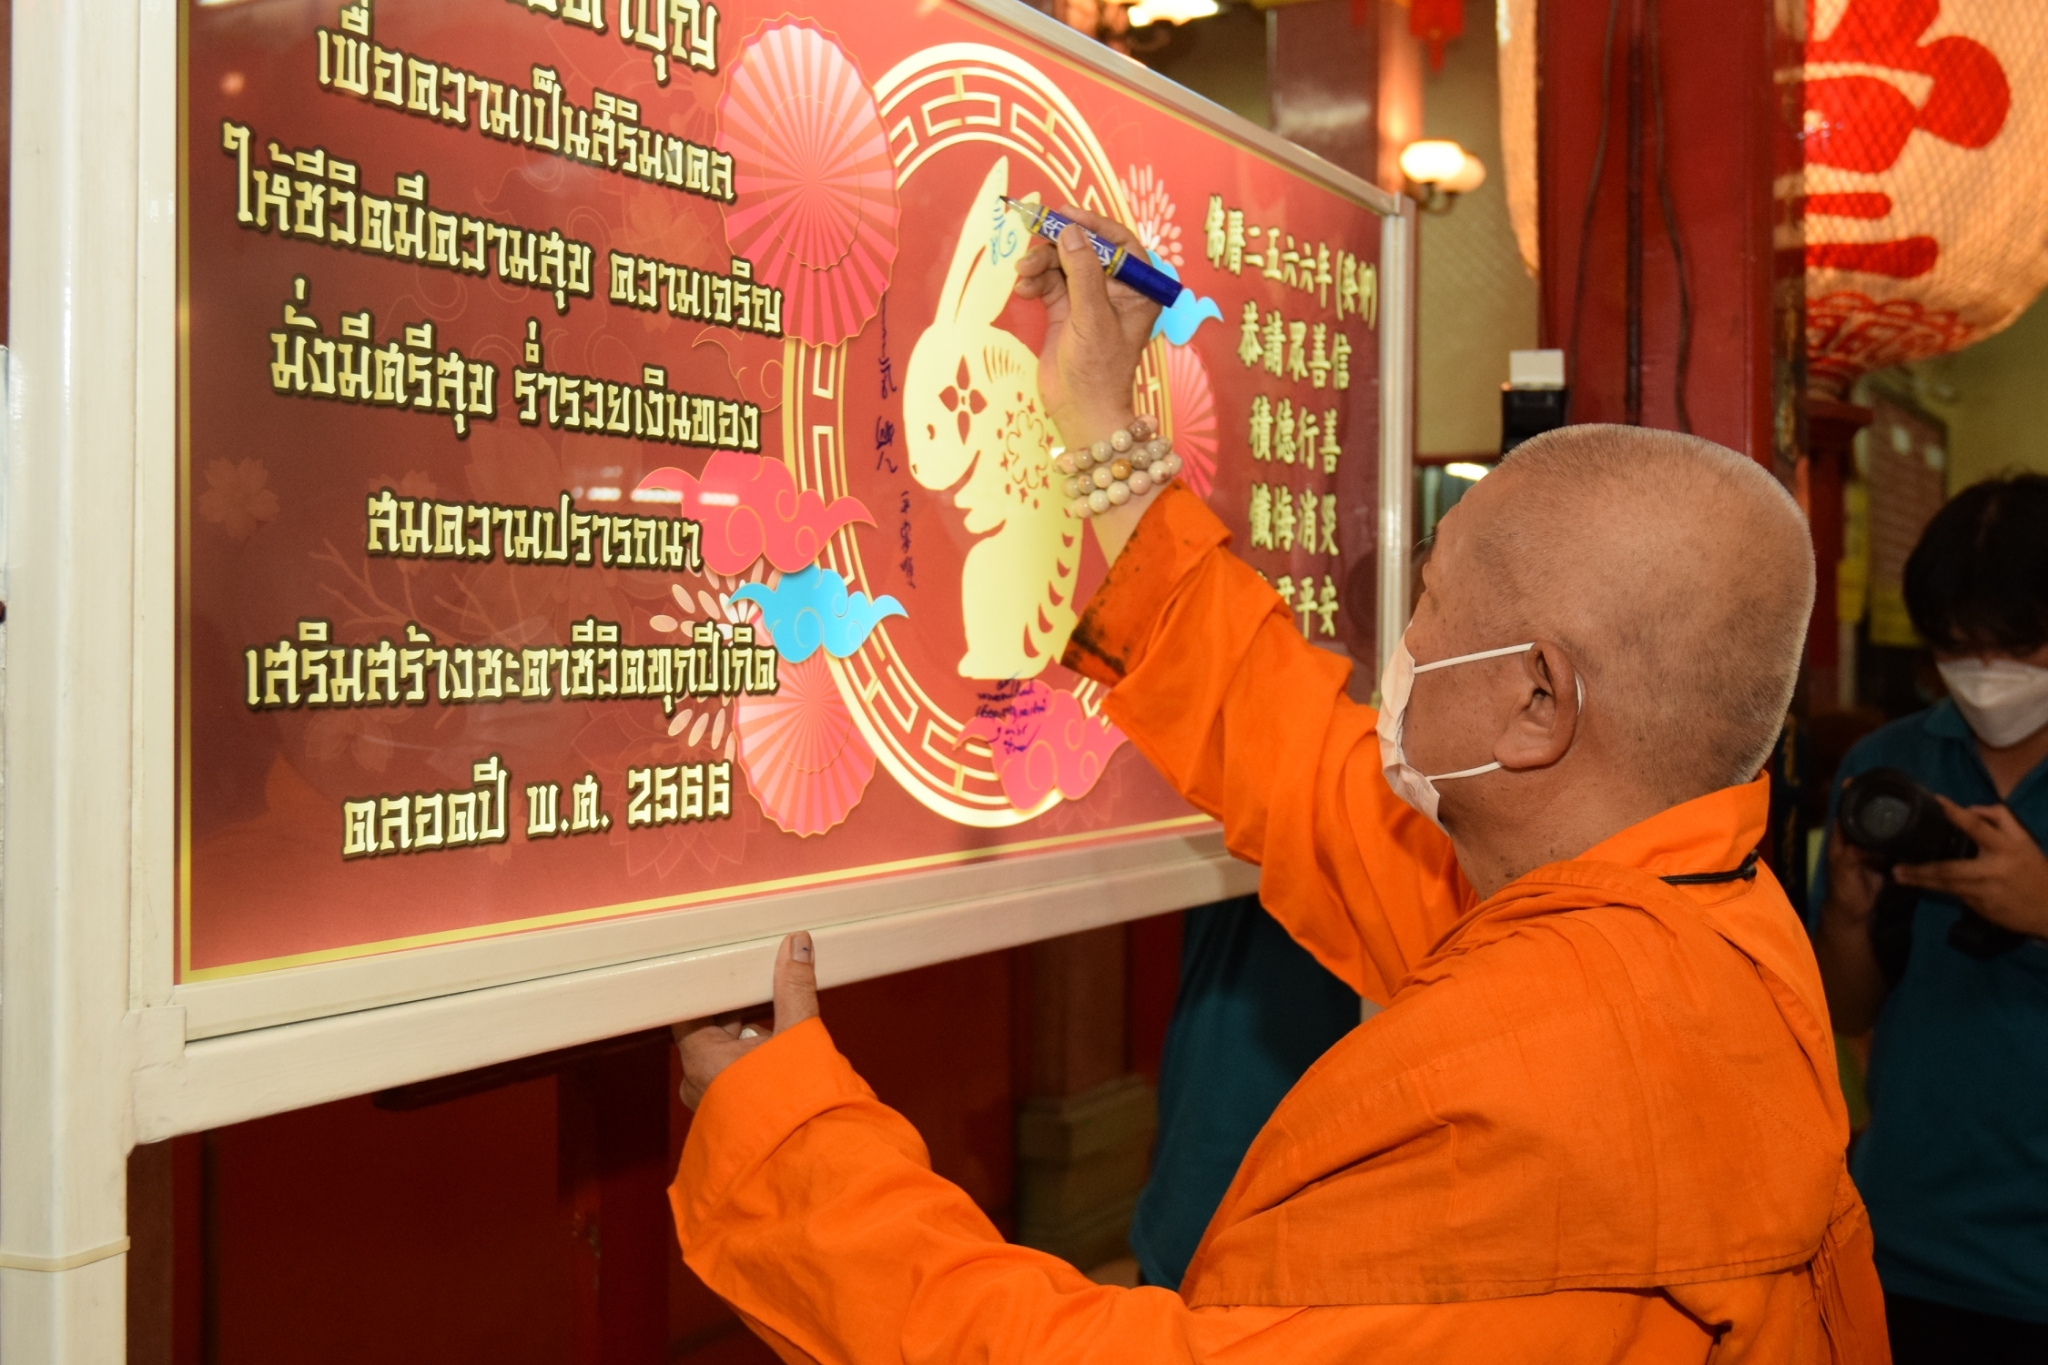 เพื่อความเป็นสิริมงคล
ให้ชีวิตมีความสุข ความเจริญ
มั่งมีศรีสุข ร่ำรวยเงินทอง
สมความปรารถนา
เสริมสร้างชะตาชีวิตทุกปีเกิด
ตลอดปี พ.ศ. 2566
佛曆二五六六年(癸卯)
恭請眾善信
積德行善
懺悔消災
平安